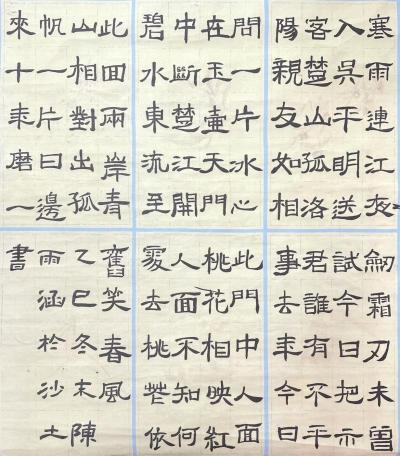 寒雨連江夜
入吳平明送
客楚山孤洛
陽親友如相
問一片冰心
在玉壺天門
中斷楚江開
碧水東流至
此回兩岸青
山相對出孤
帆一片日邊
來十年磨一
劍霜刃未曾
試今日把示
君誰有不平
事去年今日
此門中人面
桃花相映紅
人面不知何
處去桃花依
舊笑春風
乙巳冬末陳
雨涵於沙土
書